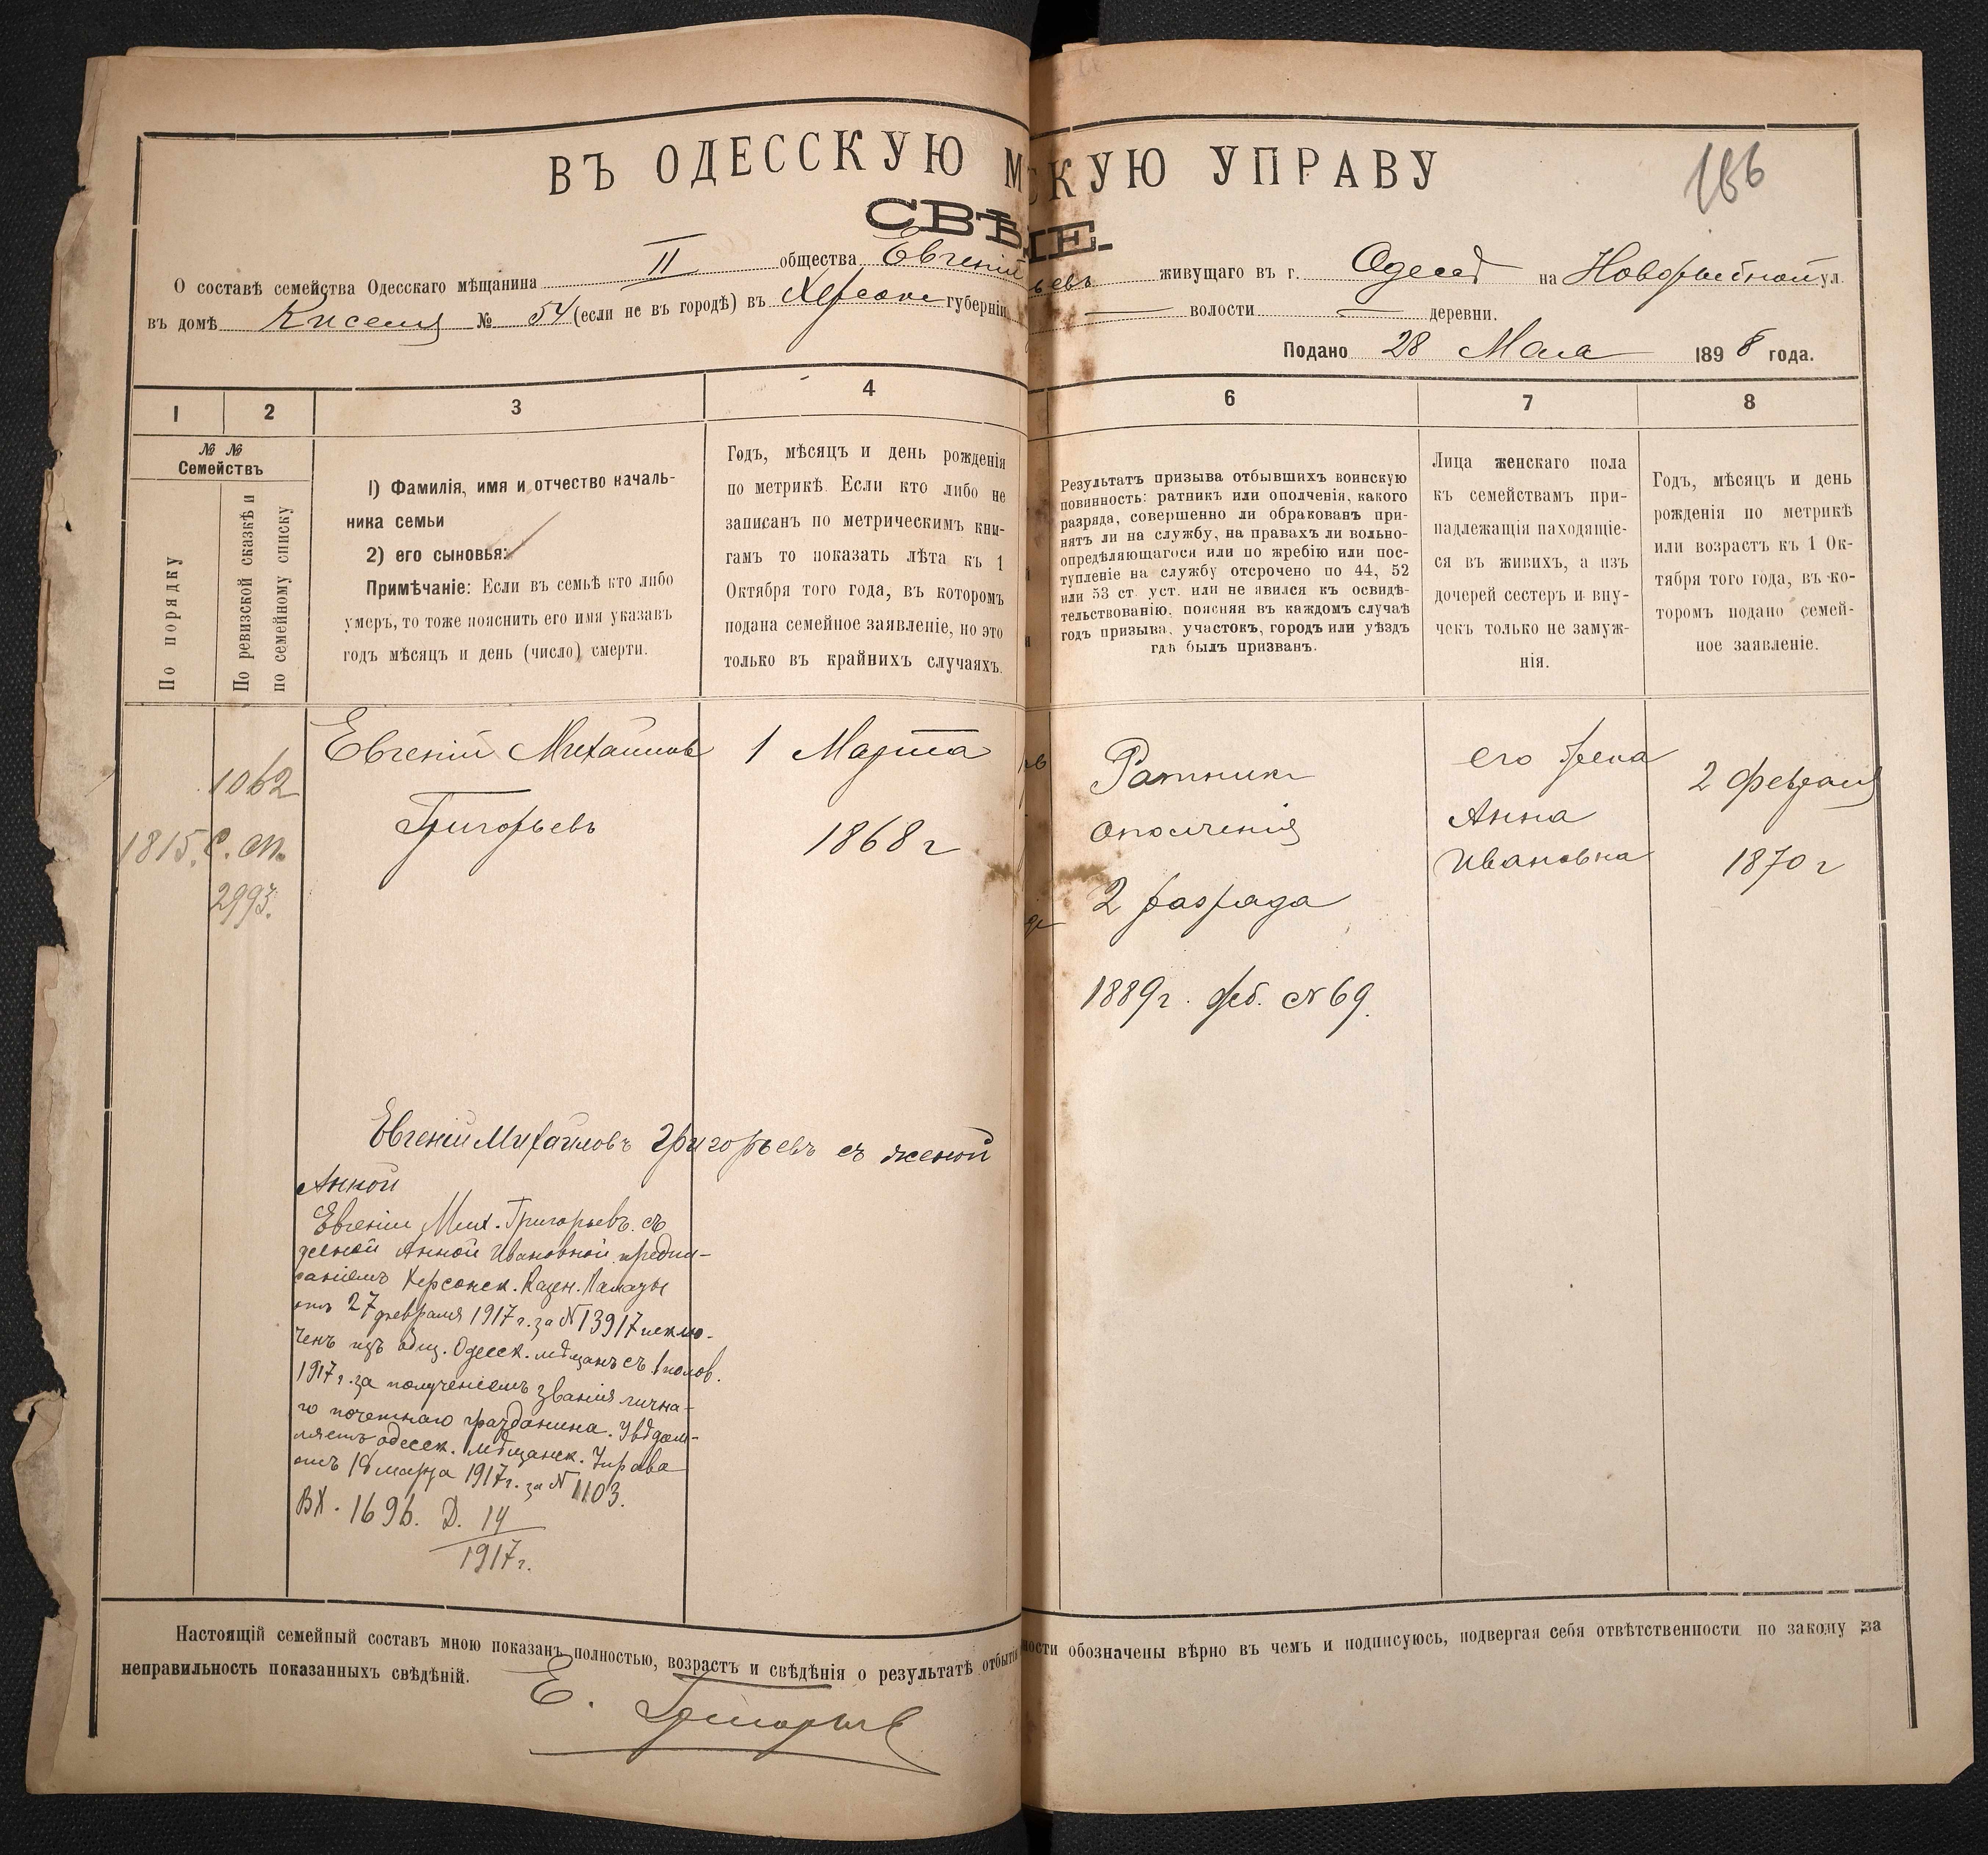 ВЪ ОДЕССКУЮ М СКУЮ УПРАВУ
166
СВѢ IE.
О составѣ семейства Одесскаго мѣщанина II общества Евгенія ьевъ живущаго въ г. Одессѣ на Новорыбной ул.
въ домѣ Киселя № 54 (если не въ городѣ) въ Херсонс губерніи — волости — деревни.
Подано 28 Мая 1898 года.
1 2 3 4 6 7 8
№ №
Семействъ
По порядку
По ревизской сказкѣ и
по семейному списку
1) Фамилія, имя и отчество началь-
ника семьи
2) его сыновья:
Примѣчаніе: Если въ семьѣ кто либо
умеръ, то тоже пояснить его имя указавъ
годъ мѣсяцъ и день (число) смерти.
Годъ, мѣсяцъ и день рожденія
по метрикѣ. Если кто либо не
записанъ по метрическимъ кни-
гамъ то показать лѣта къ 1
Октября того года, въ которомъ
подана семейное заявленіе, но это
только въ крайнихъ случаяхъ.
Результатъ призыва отбывшихъ воинскую
повинность: ратникъ или ополченія, какого
разряда, совершенно ли обракованъ при-
нятъ ли на службу, на правахъ ли вольно-
опредѣляющагося или по жребію или пос-
тупленіе на службу отсрочено по 44, 52
или 53 ст. уст. или не явился къ освидѣ-
тельствованію, поясняя въ каждомъ случаѣ
годъ призыва, участокъ, городъ или уѣздъ
гдѣ былъ призванъ.
Лица женскаго пола
къ семействамъ при-
надлежащія находящіе-
ся въ живихъ, а изъ
дочерей сестеръ и вну-
чекъ только не замуж-
нія.
Годъ, мѣсяцъ и день
рожденія по метрикѣ
или возрастъ къ 1 Ок-
тября того года, въ ко-
торомъ подано семей-
ное заявленіе.
1815.
1062
С. М.
2993.
Евгеній Михаиловъ
Григорьевъ
1 Марта
1868 г
Ратникъ
ополченія
2 разряда
1889 г. № 69.
его жена
Анна
Ивановна
2 февраля
1870 г
Евгеній Михайловъ Григорьевъ съ женой
Анной
Евгеній Мих. Григорьевъ съ
женой Анной Ивановной предпи-
саніемъ Херсонск. Казен. Палаты
отъ 27 февраля 1917 г. за № 13917 исклю-
ченъ изъ общ. Одесск. мѣщанъ съ 1 полов.
1917 г. за полученіемъ званія лична-
го почетнаго гражданина. Увѣдом-
ляетъ одесск. мѣщанск. Управа
отъ 18 марта 1917 г. за № 1103.
ВХ. 1696. Д. 14
1917 г.
Настоящій семейный составъ мною показанъ полностью, возрастъ и свѣдѣнія о результатѣ отбытія ности обозначены вѣрно въ чемъ и подписуюсь, подвергая себя отвѣтственности по закону за
неправильность показанныхъ свѣдѣній.
Е. Григорьев